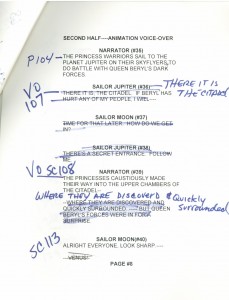 SECOND HALF----ANIMATION VOICE-OVER
NARRATOR (#35)
P104 - THE PRINCESS WARRIORS SAIL TO THE
PLANET JUPITER ON THEIR SKYFLYERS TO
DO BATTLE WITH QUEEN BERYL'S DARK
FORCES.
SAILOR JUPITER (#36) THERE IT IS
VO THERE IT IS. THE CITADEL. IF BERYL HAS THE CITADEL
107 HURT ANY OF MY PEOPLE, I WILL----
SAILOR MOON (#37)
TIME FOR THAT LATER. HOW DO WE GET
IN?
SAILOR JUPITER (#38)
THERE'S A SECRET ENTRANCE. FOLLOW
ME.
VO SC108 NARRATOR (#39)
THE PRINCESSES CAUTIOUSLY MADE
THEIR WAY INTO THE UPPER CHAMBERS OF
THE CITADEL----
WHERE THEY ARE DISCOVERD & Quickly
WHERE THEY ARE DISCOVERED AND surrounded
QUICKLY SURROUNDED. BUT QUEEN
BERYL'S FORCES WERE IN FOR A
SURPRISE.
SC 113 SAILOR MOON(#40)
ALRIGHT EVERYONE. LOOK SHARP ----
VENUS!
PAGE #8